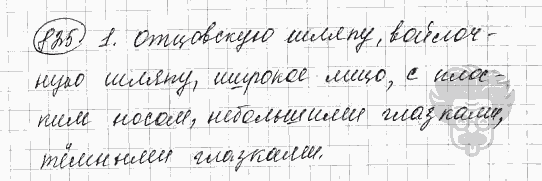 825 1. отцовскую шляпу, войлоч-
ную шляпу, широкое лицо, с плос-
ким носом, небольшими глазками,
тёмными глазками.